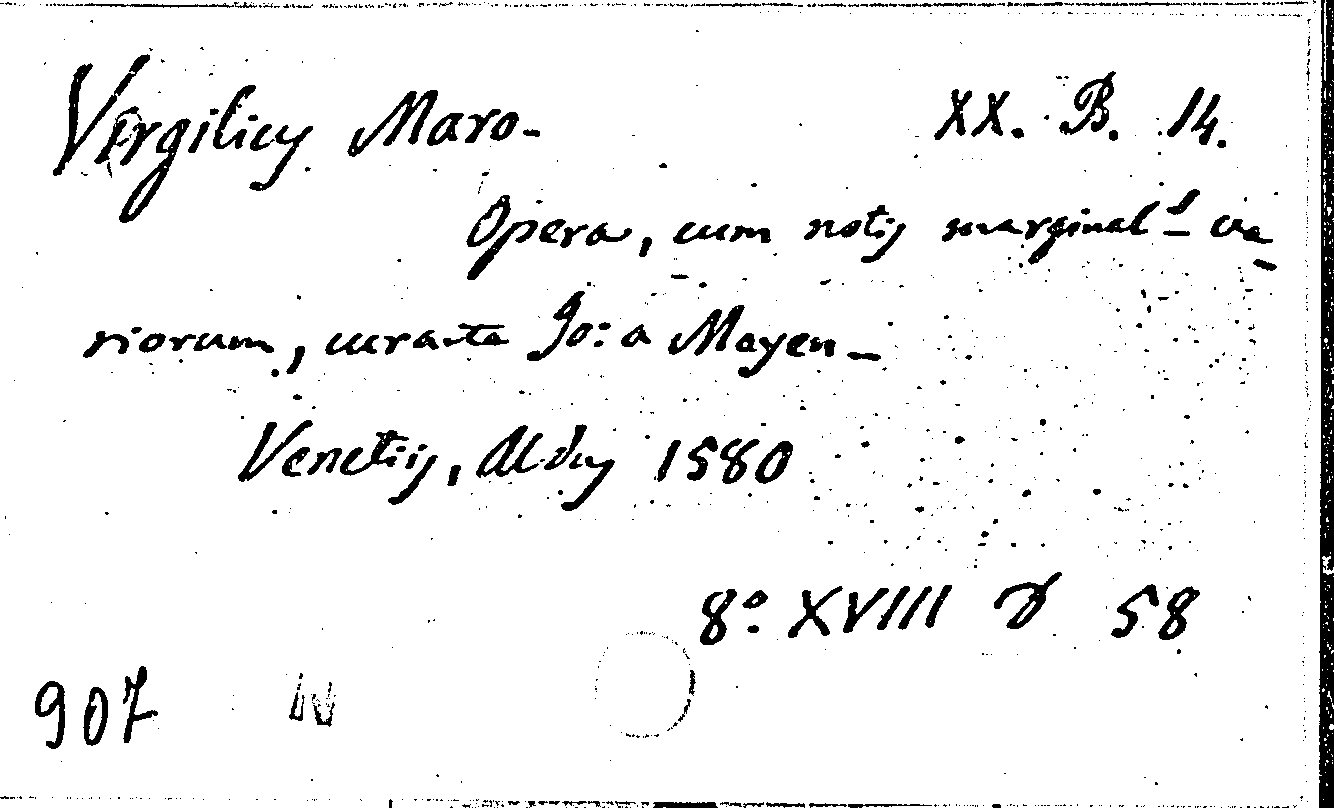 Virgilius Maro. XX. B. 14.
Opera, cum notis marginal. va-
riorum, curante Jo: a Meyen
Venetiis, Aldus 1580
8º XVIII D 58
907